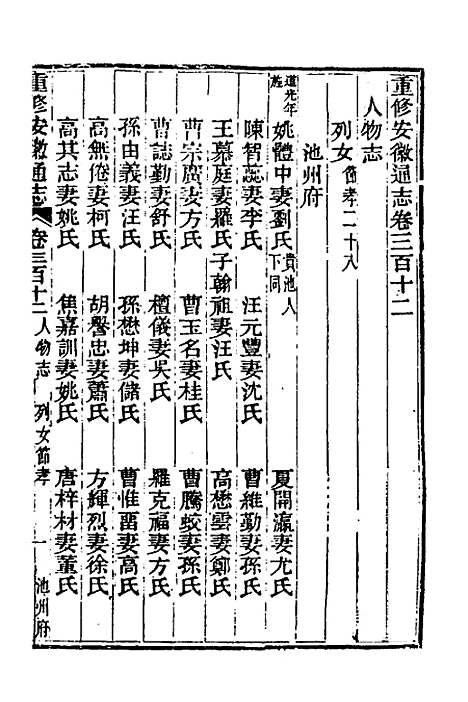 重修安徽通志卷三百十二
人物志
列女節孝二十八
池州府
道光年旌 姚體中妻劉氏貴池人下同 夏開瀛妻尤氏
陳智蕊妻李氏 汪元豐妻沈氏 曹維勤妻孫氏
王慕庭妻羅氏子翰祖妻汪氏 高懋雲妻鄭氏
曹宗廣妻方氏 曹玉名妻桂氏 曹騰蛟妻孫氏
曹誌勤妻舒氏 檀儀妻吳氏 羅克福妻方氏
孫由義妻汪氏 孫懋坤妻儲氏 曹惟商妻高氏
高無倦妻柯氏 胡譽忠妻蕭氏 方輝烈妻徐氏
高其志妻姚氏 焦嘉訓妻姚氏 唐梓材妻董氏
重修安徽通志 卷三百十二 人物志 列女節孝 一 池州府